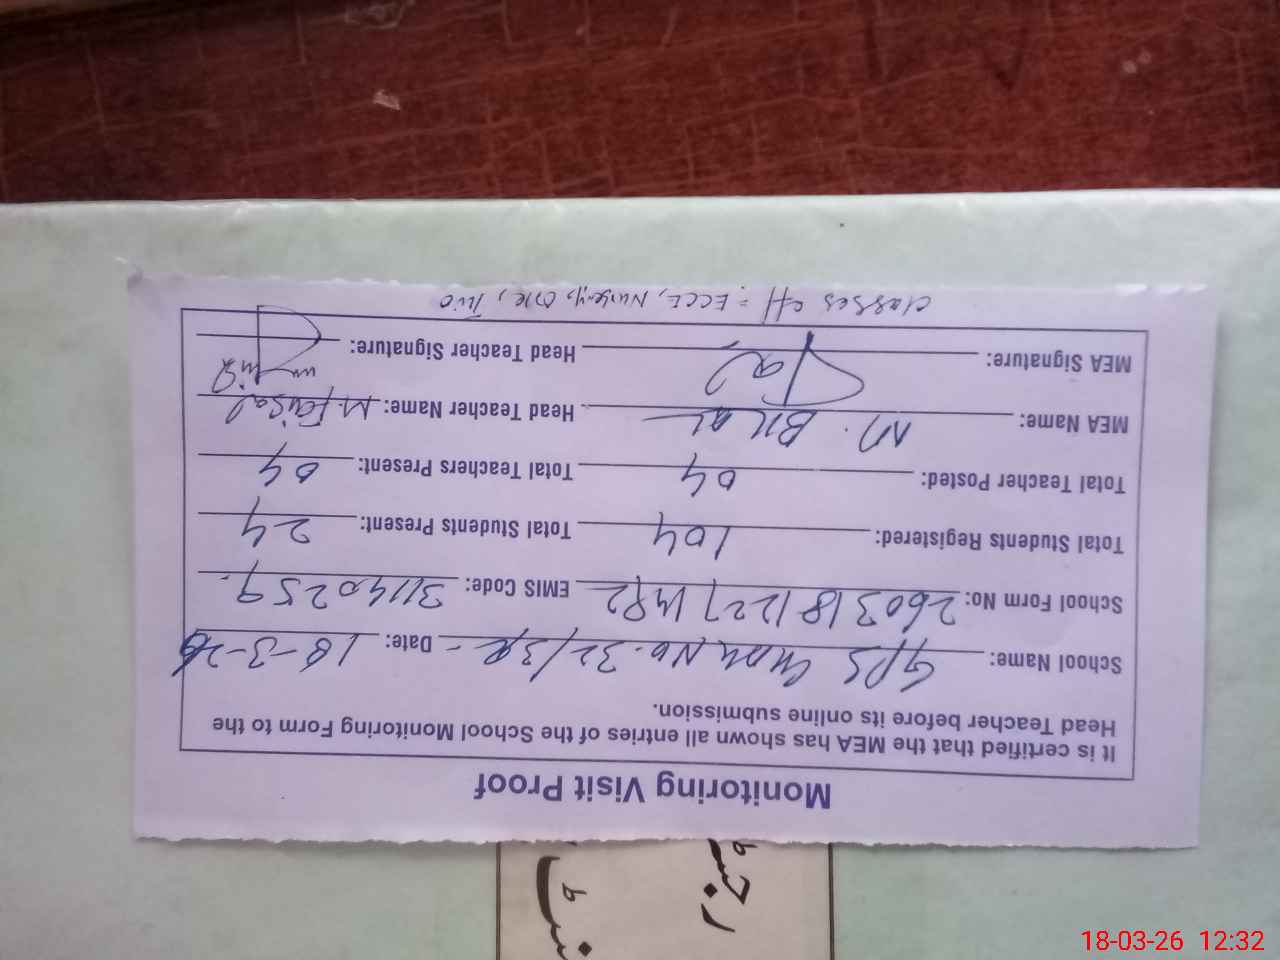 Monitoring Visit Proof
It is certified that the MEA has shown all entries of the School Monitoring Form to the
Head Teacher before its online submission.
School Name: GPS Chak No. 32/3R - Date: 18-3-26
School Form No: 26031812271482 EMIS Code: 31140259
Total Students Registered: 104 Total Students Present: 24
Total Teacher Posted: 04 Total Teachers Present: 04
MEA Name: M. Bilal Head Teacher Name: M. Faisal
MEA Signature: Head Teacher Signature:
classes off: ECCE, Nursery, One, Two
رجسٹر
18-03-26 12:32